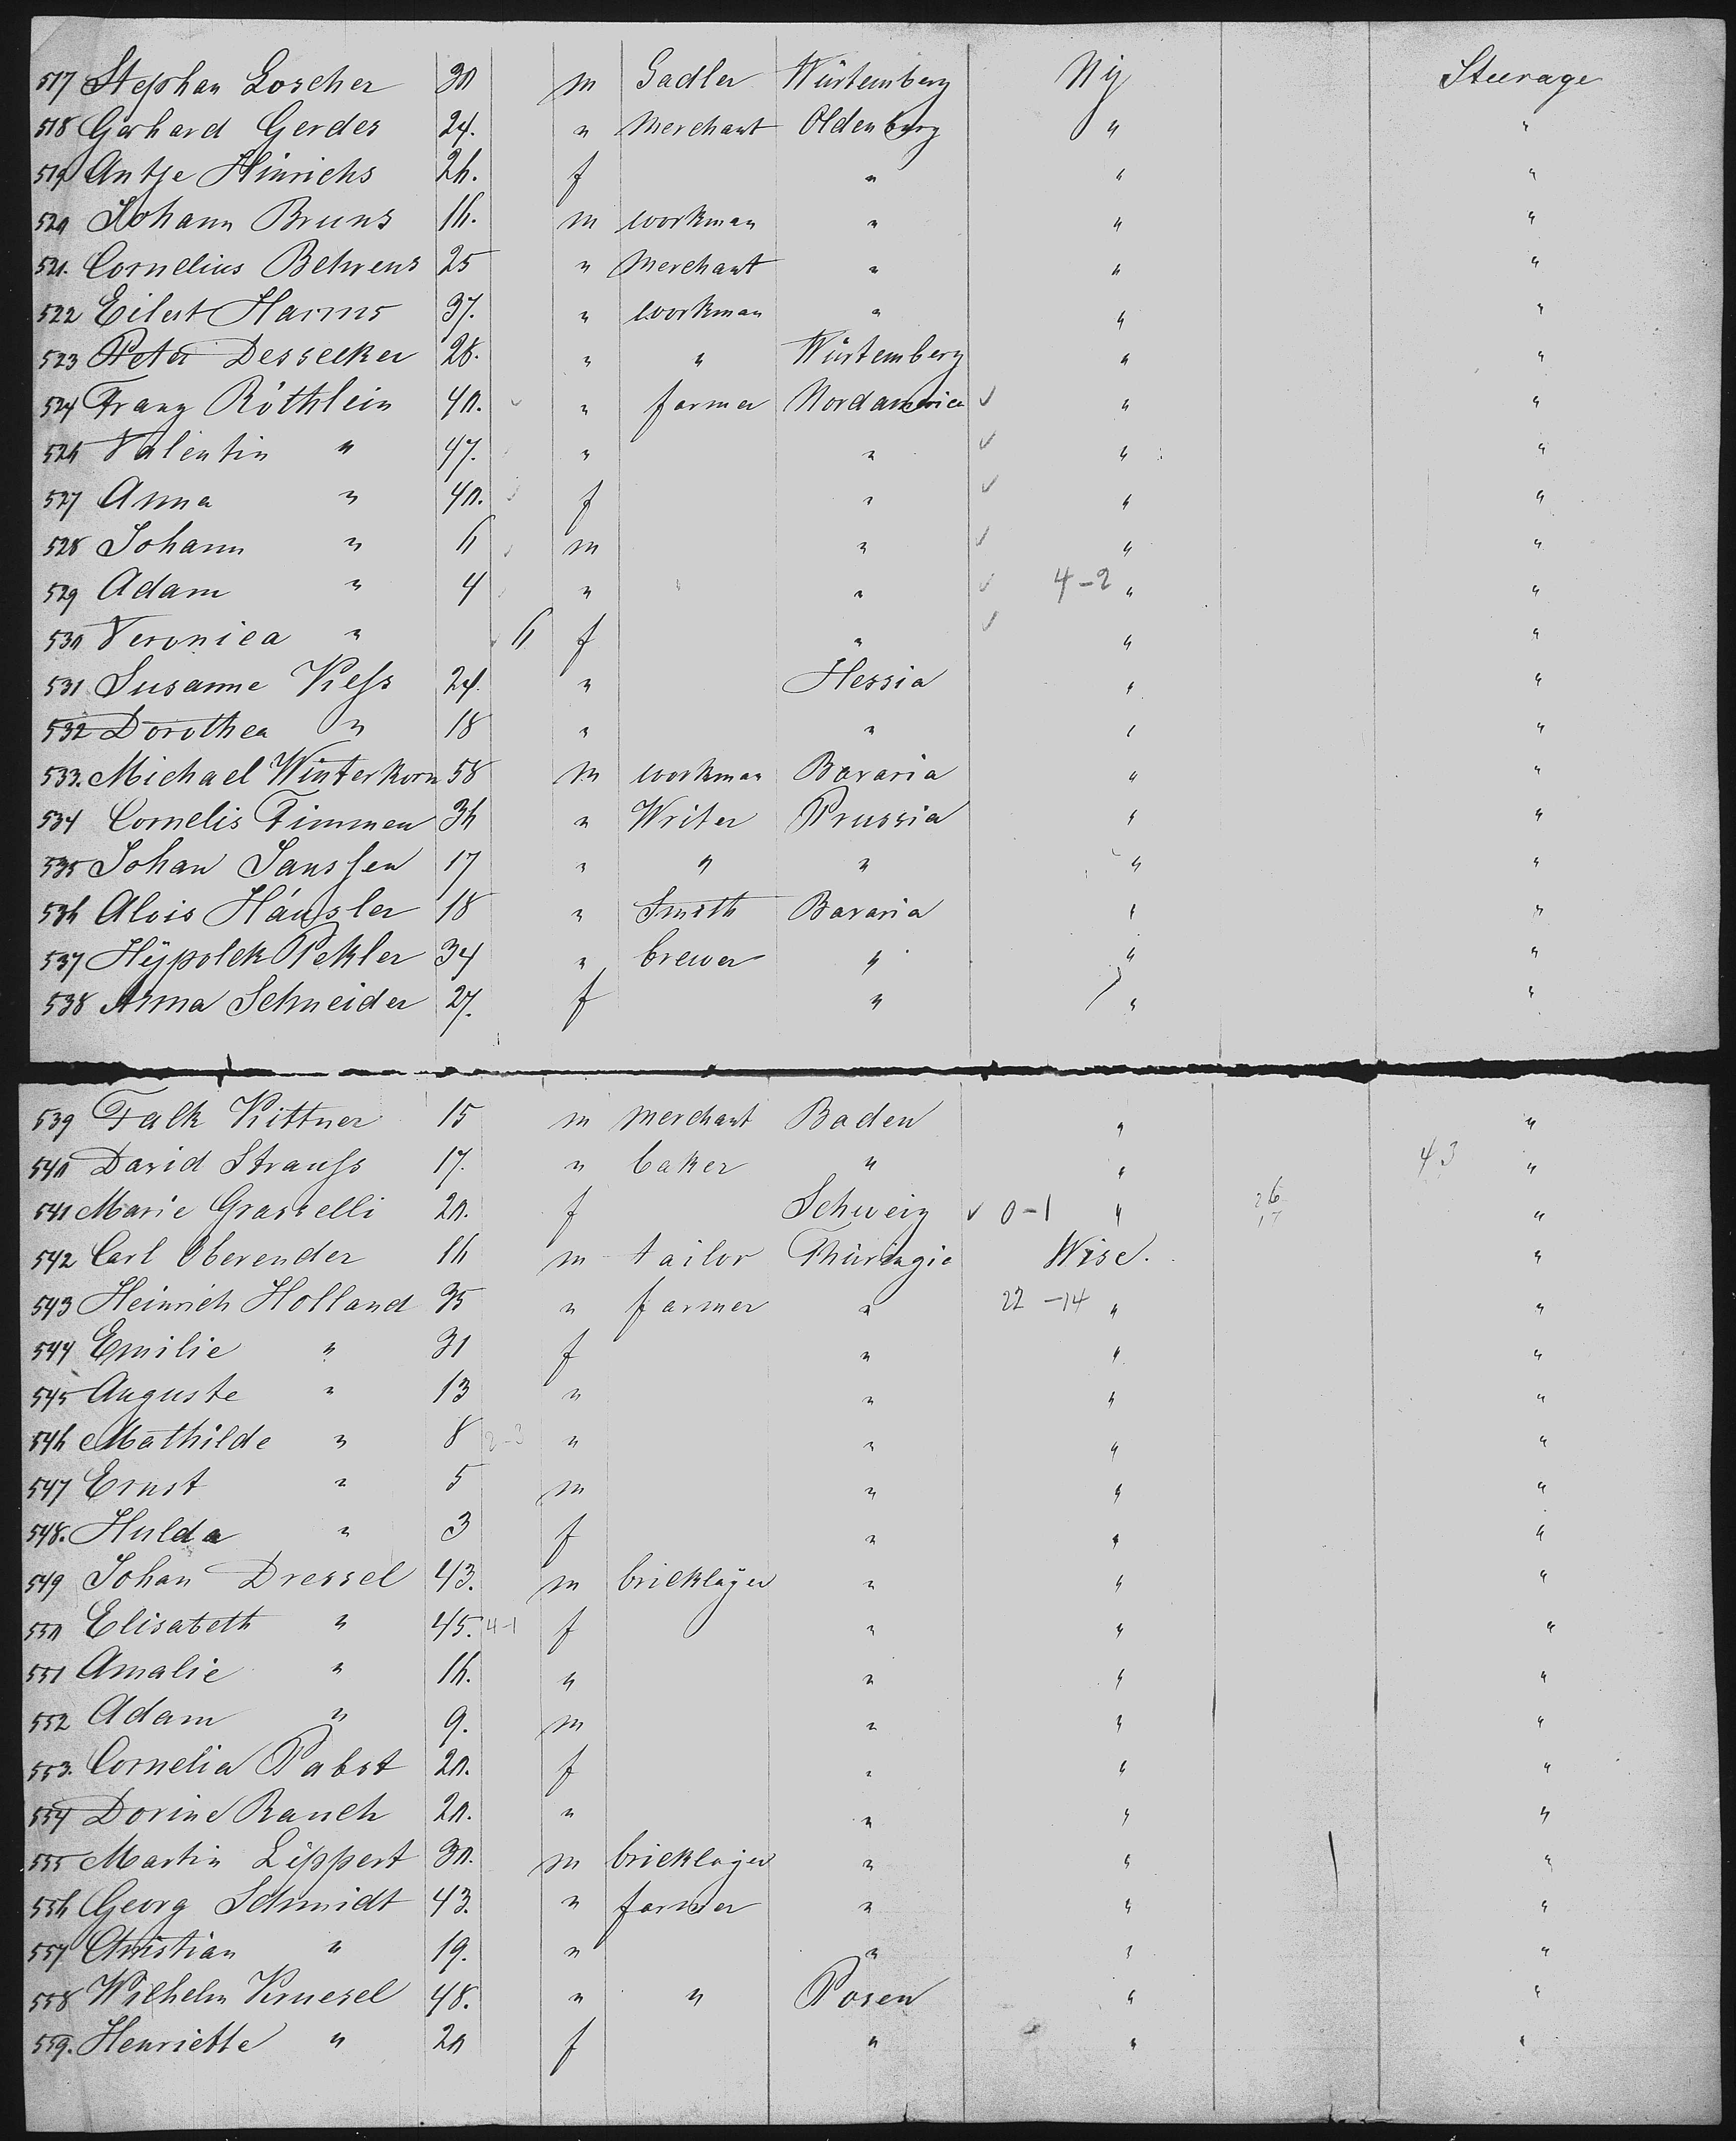 517 Stephan Loscher 30 m Sadler Würtemberg Ny Steerage
518 Gerhard Gerdes 24. " Merchant Oldenburg " "
519 Antje Hinrichs 26. f " " "
520 Johann Bruns 16. m workman " " "
521. Cornelius Behrens 25 " Merchant " " "
522 Eilert Harms 37. " workman " " "
523 Peter Dessecker 28. " " Würtemberg " "
524 Franz Röthlein 40. " farmer Nordamerica ✓ " "
526 Valentin " 47. " " ✓ " "
527 Anna " 40. f " ✓ " "
528 Johann " 6 m " ✓ " "
529 Adam " 4 " " ✓ 4-2 " "
530 Veronica " 6 f " ✓ " "
531 Susanne Kieß 24. " Hessia " "
532 Dorothea " 18 " " " "
533. Michael Winterkorn 58 m workman Bavaria " "
534 Cornelis Timmen 36 " Writer Prussia " "
535 Johan Janssen 17 " " " " "
536 Alois Häusler 18 " Smith Bavaria " "
537 Hÿpolek Pekler 34 " brewer " " "
538 Anna Schneider 27. f " " "
539 Falk Kittner 15 m Merchant Baden " "
540 David Strauß 17. " baker " " 43 "
541 Marie Grasselli 20. f Schweiz ✓ 0-1 " 26 17 "
542 Carl Oberender 16 m tailor Thüringia Wisc. "
543 Heinrich Holland 35 " farmer " 22-14 " "
544 Emilie " 31 f " " "
545 Auguste " 13 " " " "
546 Mathilde " 8 " " " "
547 Ernst " 5 m " " "
548. Hulda " 3 f " " "
549 Johan Dressel 43. m bricklayer " " "
550 Elisabeth " 45. 4-1 f " " "
551 Amalie " 16. " " " "
552 Adam " 9. m " " "
553. Cornelia Pabst 20. f " " "
554 Dorine Rauch 20. " " " "
555 Martin Lippert 30. m bricklayer " " "
556 Georg Schmidt 43. " farmer " " "
557 Christian " 19. " " " "
558 Wilhelm Kruesel 48. " " Posen " "
559. Henriette " 20 f " " "